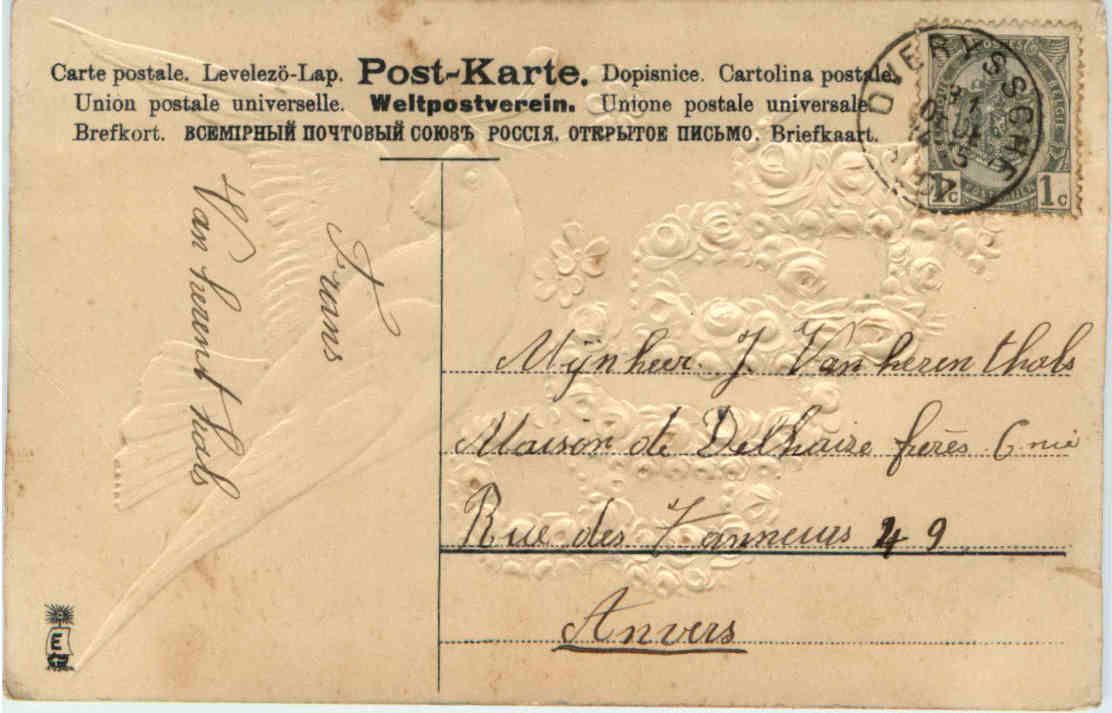 Carte postale. Levelezö-Lap. Post-Karte. Dopisnice. Cartolina postale.
Union postale universelle. Weltpostverein. Unione postale universale.
Brefkort. ВСЕМІРНЫЙ ПОЧТОВЫЙ СОЮЗЪ РОССІЯ. ОТКРЫТОЕ ПИСЬМО. Briefkaart.
OVERYSSCHE
1c 1c
Frans
Van herent hals
Mijnheer. J. Van heren thals
Maison de Delhaize frères Cnie
Rue des Tanneurs 49
Anvers
E